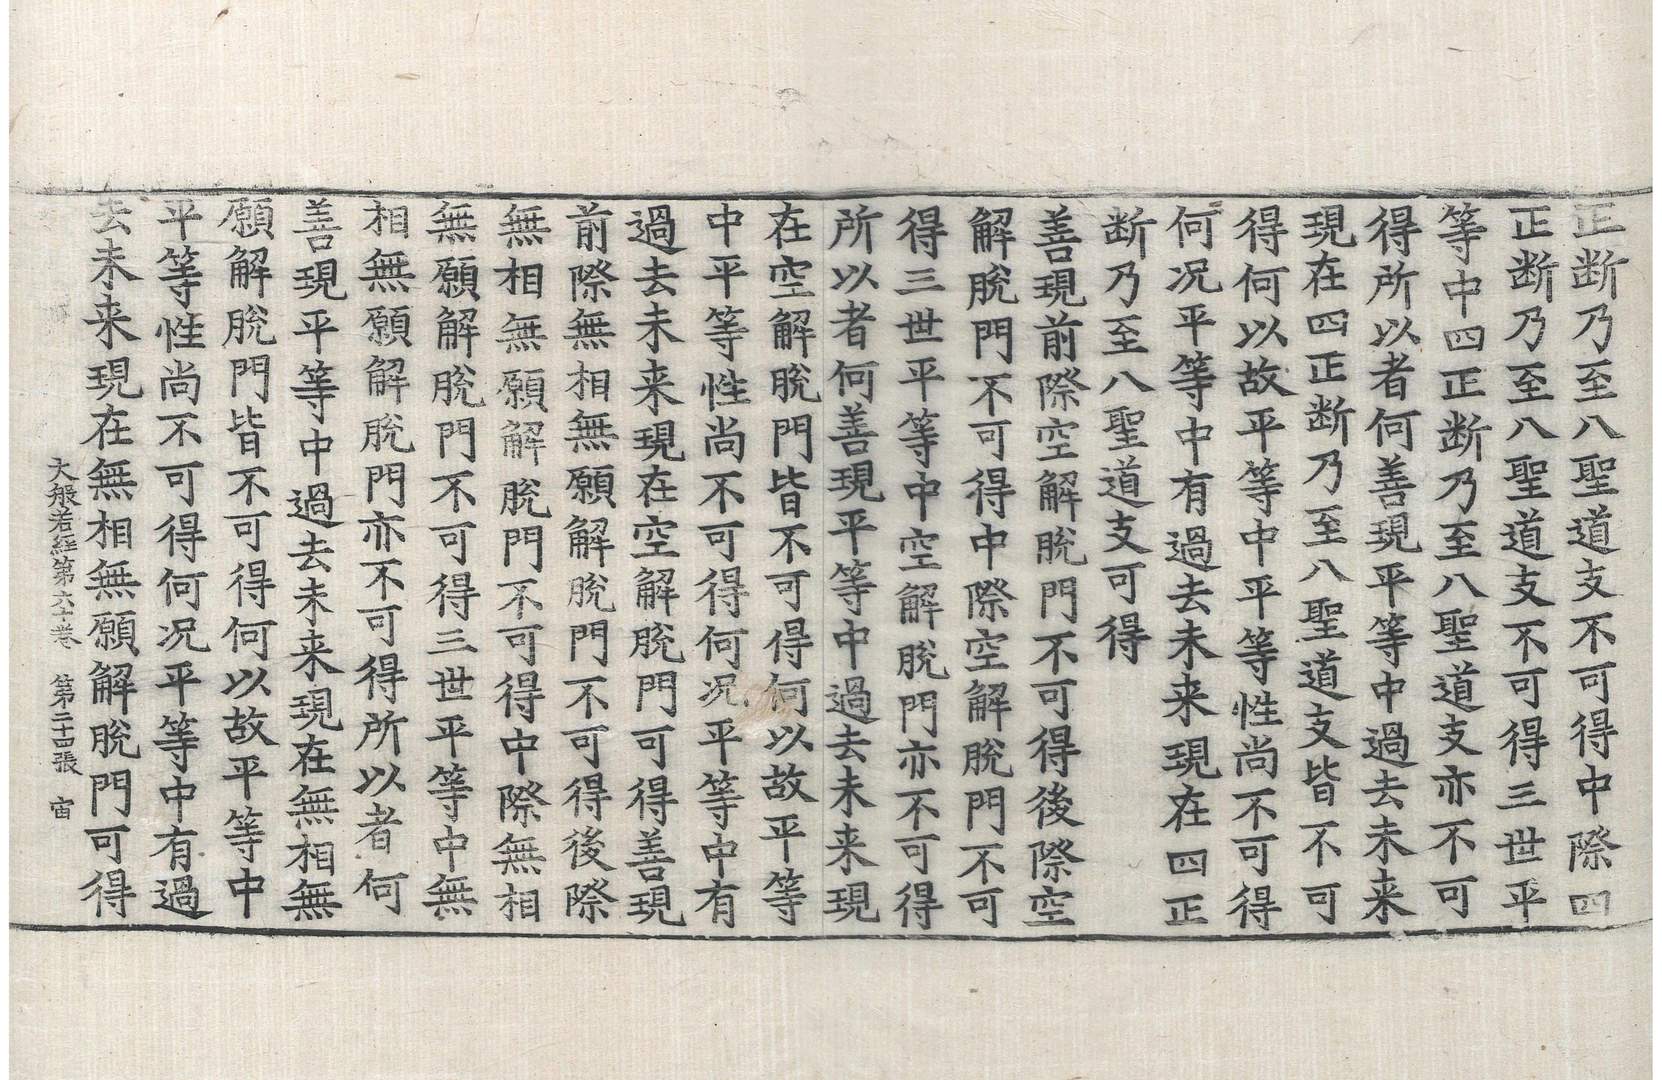 正断乃至八聖道支不可得中際四
正断乃至八聖道支不可得三世平
等中四正断乃至八聖道支亦不可
得所以者何善現平等中過去未来
現在四正断乃至八聖道支皆不可
得何以故平等中平等性尚不可得
何况平等中有過去未来現在四正
断乃至八聖道支可得
善現前際空解脫門不可得後際空
解脫門不可得中際空解脫門不可
得三世平等中空解脫門亦不可得
所以者何善現平等中過去未来現
在空解脫門皆不可得何以故平等
中平等性尚不可得何况平等中有
過去未来現在空解脫門可得善現
前際無相無願解脫門不可得後際
無相無願解脫門不可得中際無相
無願解脫門不可得三世平等中無
相無願解脫門亦不可得所以者何
善現平等中過去未来現在無相無
願解脫門皆不可得何以故平等中
平等性尚不可得何况平等中有過
去未来現在無相無願解脫門可得
大般若経第六十卷 第二十四張 宙